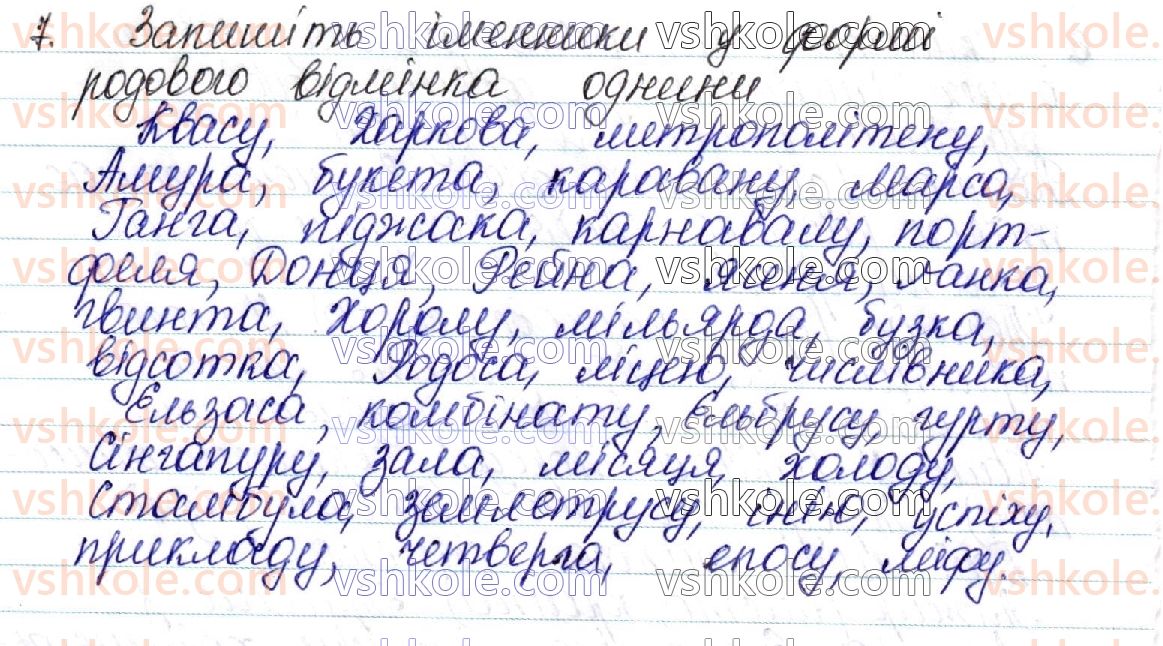 7. Запишіть іменники у формі
родового відмінка однини
Квасу, Харкова, метрополітену,
Амура, букета, каравану, Марса,
Ганга, піджака, карнавалу, порт-
феля, Донця, Рейна, ясеня, ганка,
гвинта, Хоролу, мільярда, бузка,
відсотка, Родоса, ліцею, числівника,
Ельзаса, комбінату, Ельбрусу, гурту,
Сінгапуру, зала, місяця, холоду,
Стамбула, землетрусу, інію, успіху,
прикладу, четверга, епосу, міфу.